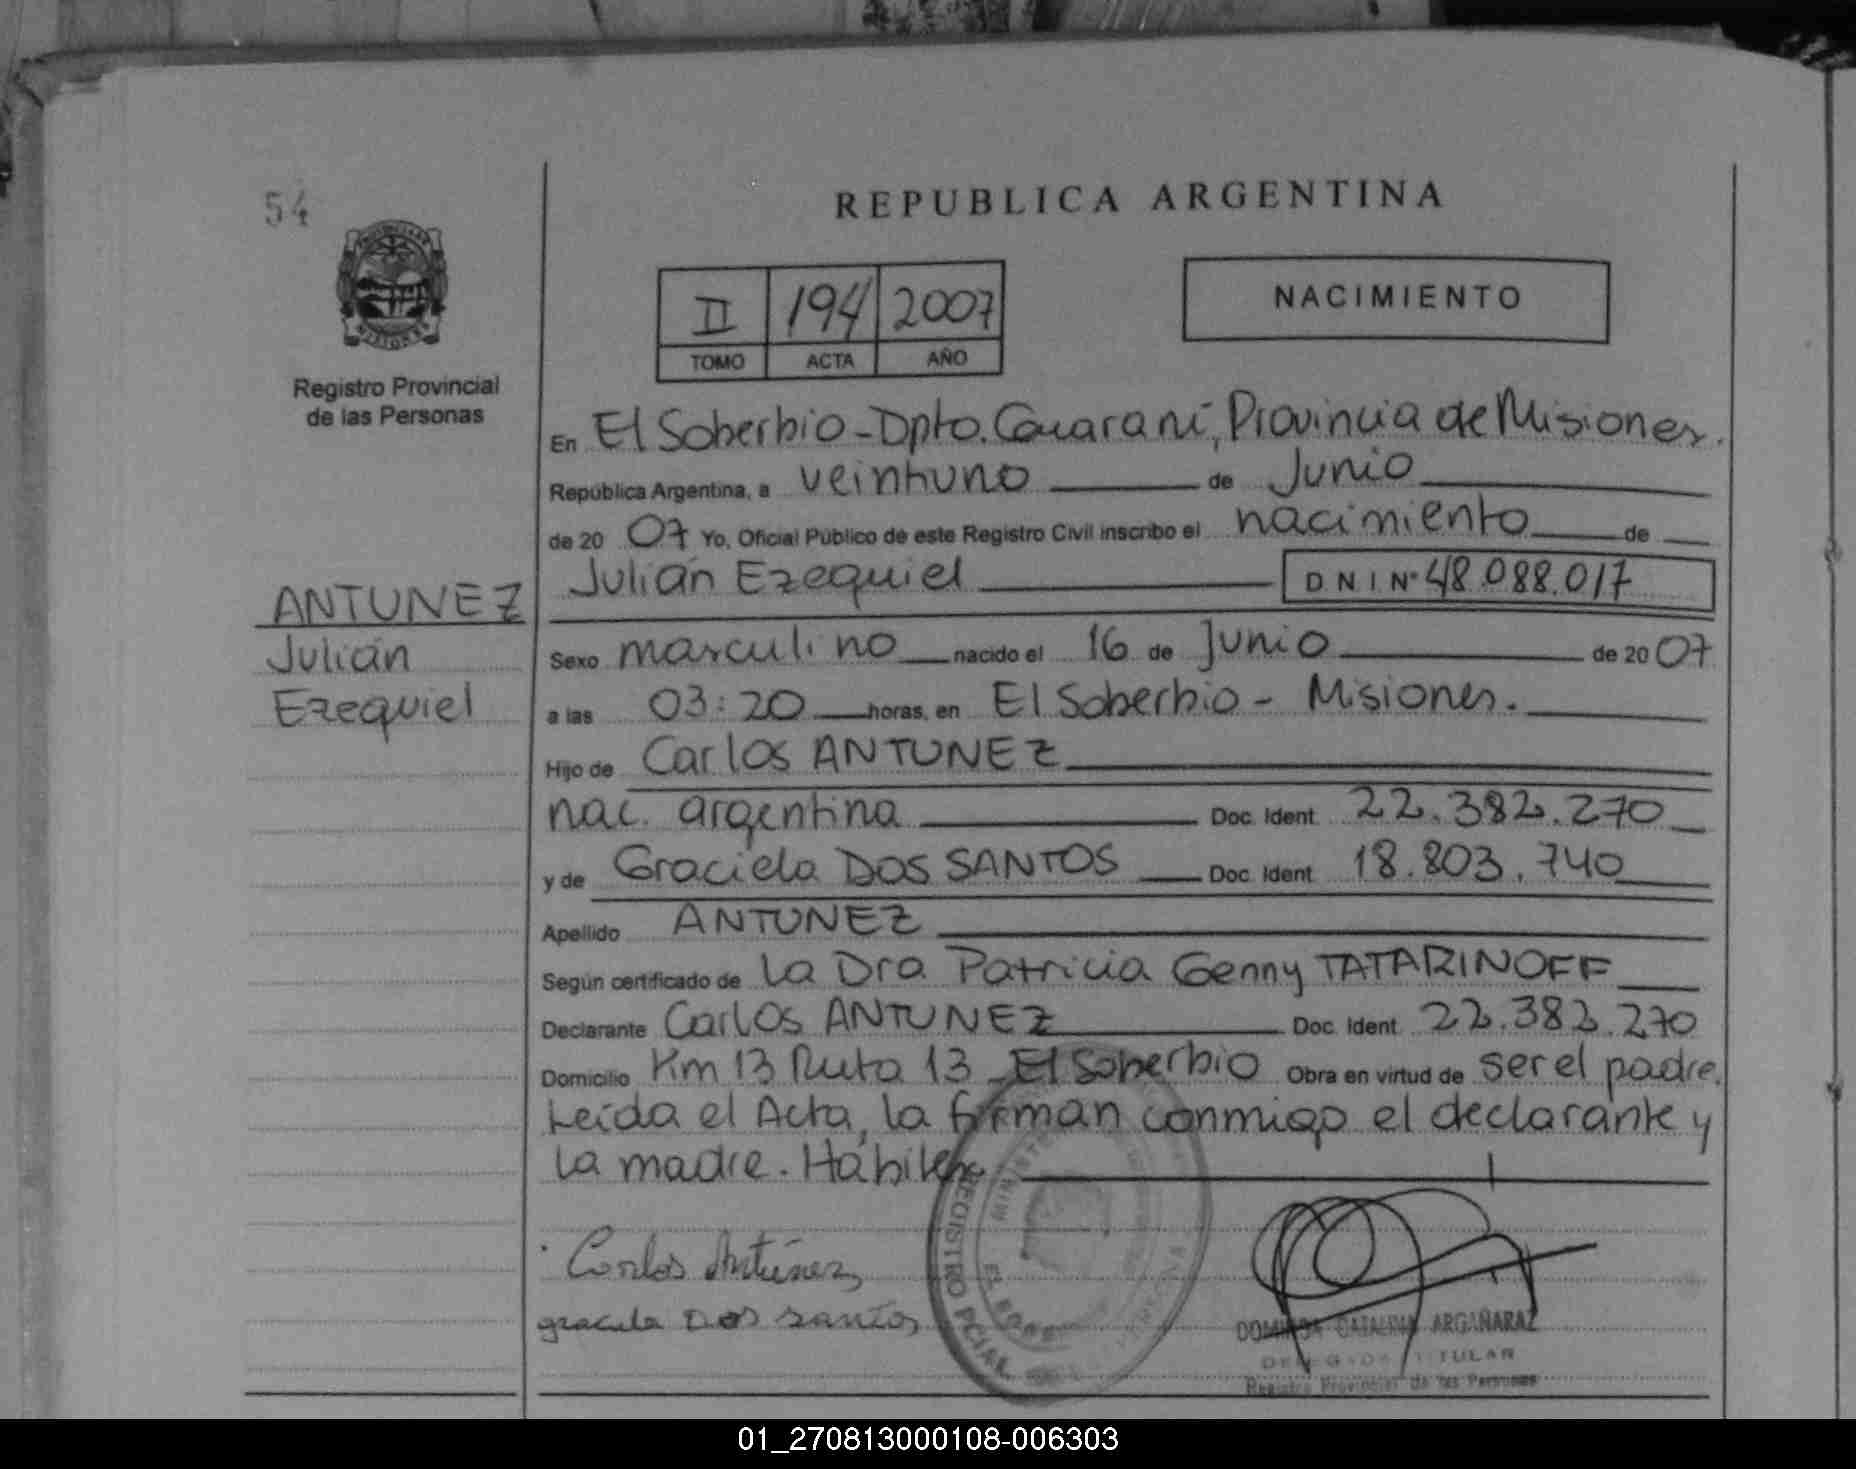 54
REPUBLICA ARGENTINA
II 194 2007
TOMO ACTA AÑO
NACIMIENTO
Registro Provincial
de las Personas
En El Soberbio - Dpto. Guaraní, Provincia de Misiones.
República Argentina, a veintiuno de Junio
de 20 07 Yo, Oficial Público de este Registro Civil inscribo el nacimiento de
Julián Ezequiel DNI Nº 48.088.017
ANTUNEZ
Julián
Ezequiel
Sexo masculino nacido el 16 de Junio de 20 07
a las 03:20 horas, en El Soberbio - Misiones.
Hijo de Carlos ANTUNEZ
nac. argentina Doc. Ident. 22.382.270
y de Graciela DOS SANTOS Doc. Ident. 18.803.740
Apellido ANTUNEZ
Según certificado de la Dra Patricia Genny TATARINOFF
Declarante Carlos ANTUNEZ Doc. Ident. 22.382.270
Domicilio Km 13 Ruta 13 - El Soberbio Obra en virtud de ser el padre.
Leída el Acta, la firman conmigo el declarante y
la madre. Hábiles
Carlos Antúnez
graciela DOS santos
REGISTRO PCIAL.
DOMINGA CATALINA ARGAÑARAZ
DELEGADA TITULAR
Registro Provincial de las Personas
01_270813000108-006303